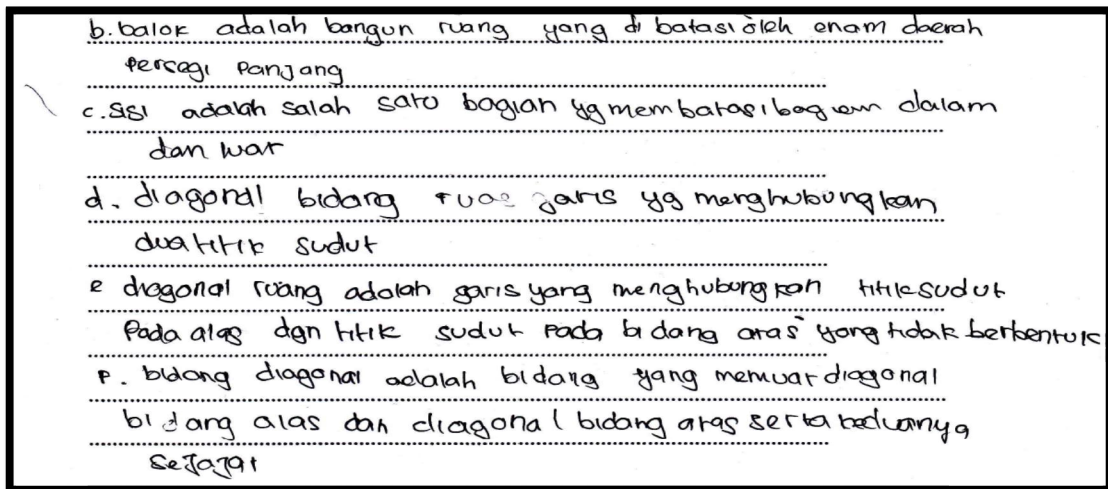 b. balok adalah bangun ruang yang di batasi oleh enam daerah
persegi panjang
c. sisi adalah salah satu bagian yg membatasi bagian dalam
dan luar
d. diagonal bidang ruas garis yg menghubungkan
dua titik sudut
e diagonal ruang adalah garis yang menghubungkan titik sudut
pada alas dgn titik sudut pada bidang atas yang tidak berbentuk
F. bidang diagonal adalah bidang yang memuat diagonal
bidang alas dan diagonal bidang atas serta keduanya
sejajar